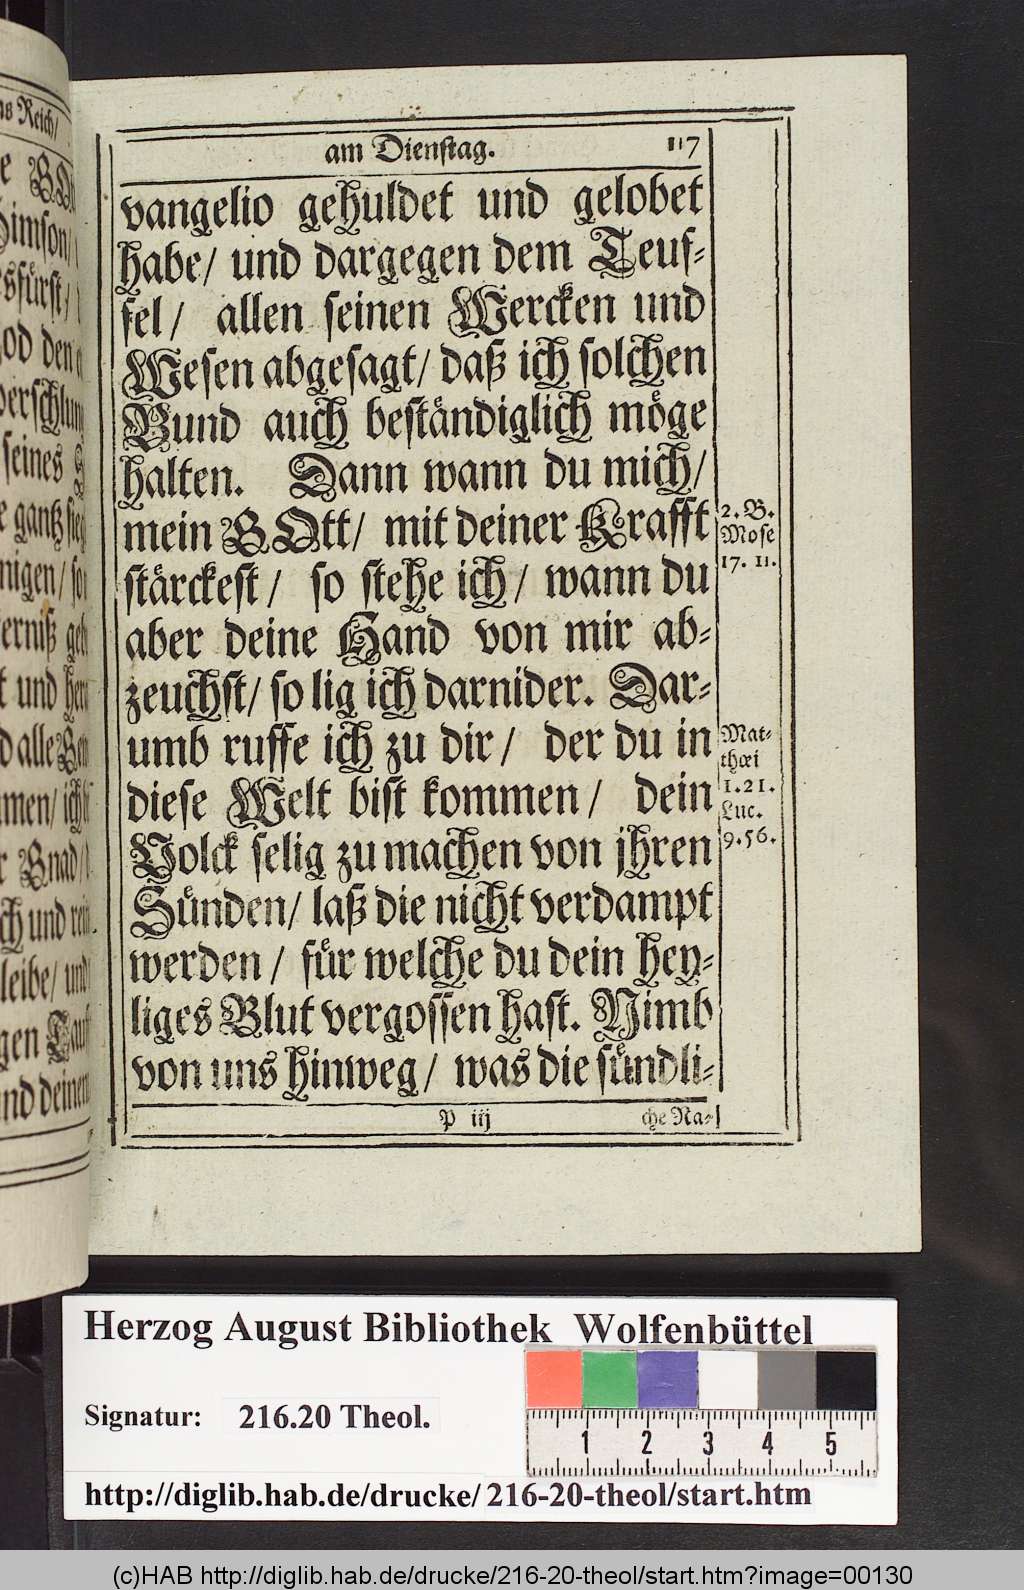 ns Reich/
am Dienstag. 117
vangelio gehuldet und gelobet
habe/ und dargegen dem Teuf-
fel/ allen seinen Wercken und
Wesen abgesagt/ daß ich solchen
Bund auch beständiglich möge
halten. Dann wann du mich/
mein GOtt/ mit deiner Krafft
stärckest/ so stehe ich/ wann du
aber deine Hand von mir ab-
zeuchst/ so lig ich darnider. Dar-
umb ruffe ich zu dir/ der du in
diese Welt bist kommen/ dein
Volck selig zu machen von jhren
Sünden/ laß die nicht verdampt
werden/ für welche du dein hey-
liges Blut vergossen hast. Nimb
von uns hinweg/ was die sündli-
P iij che Na-
2. B.
Mose
17. 11.
Mat-
thæi
1. 21.
Luc.
9. 56.
Herzog August Bibliothek Wolfenbüttel
Signatur: 216.20 Theol.
1 2 3 4 5
http://diglib.hab.de/drucke/216-20-theol/start.htm
(c)HAB http://diglib.hab.de/drucke/216-20-theol/start.htm?image=00130